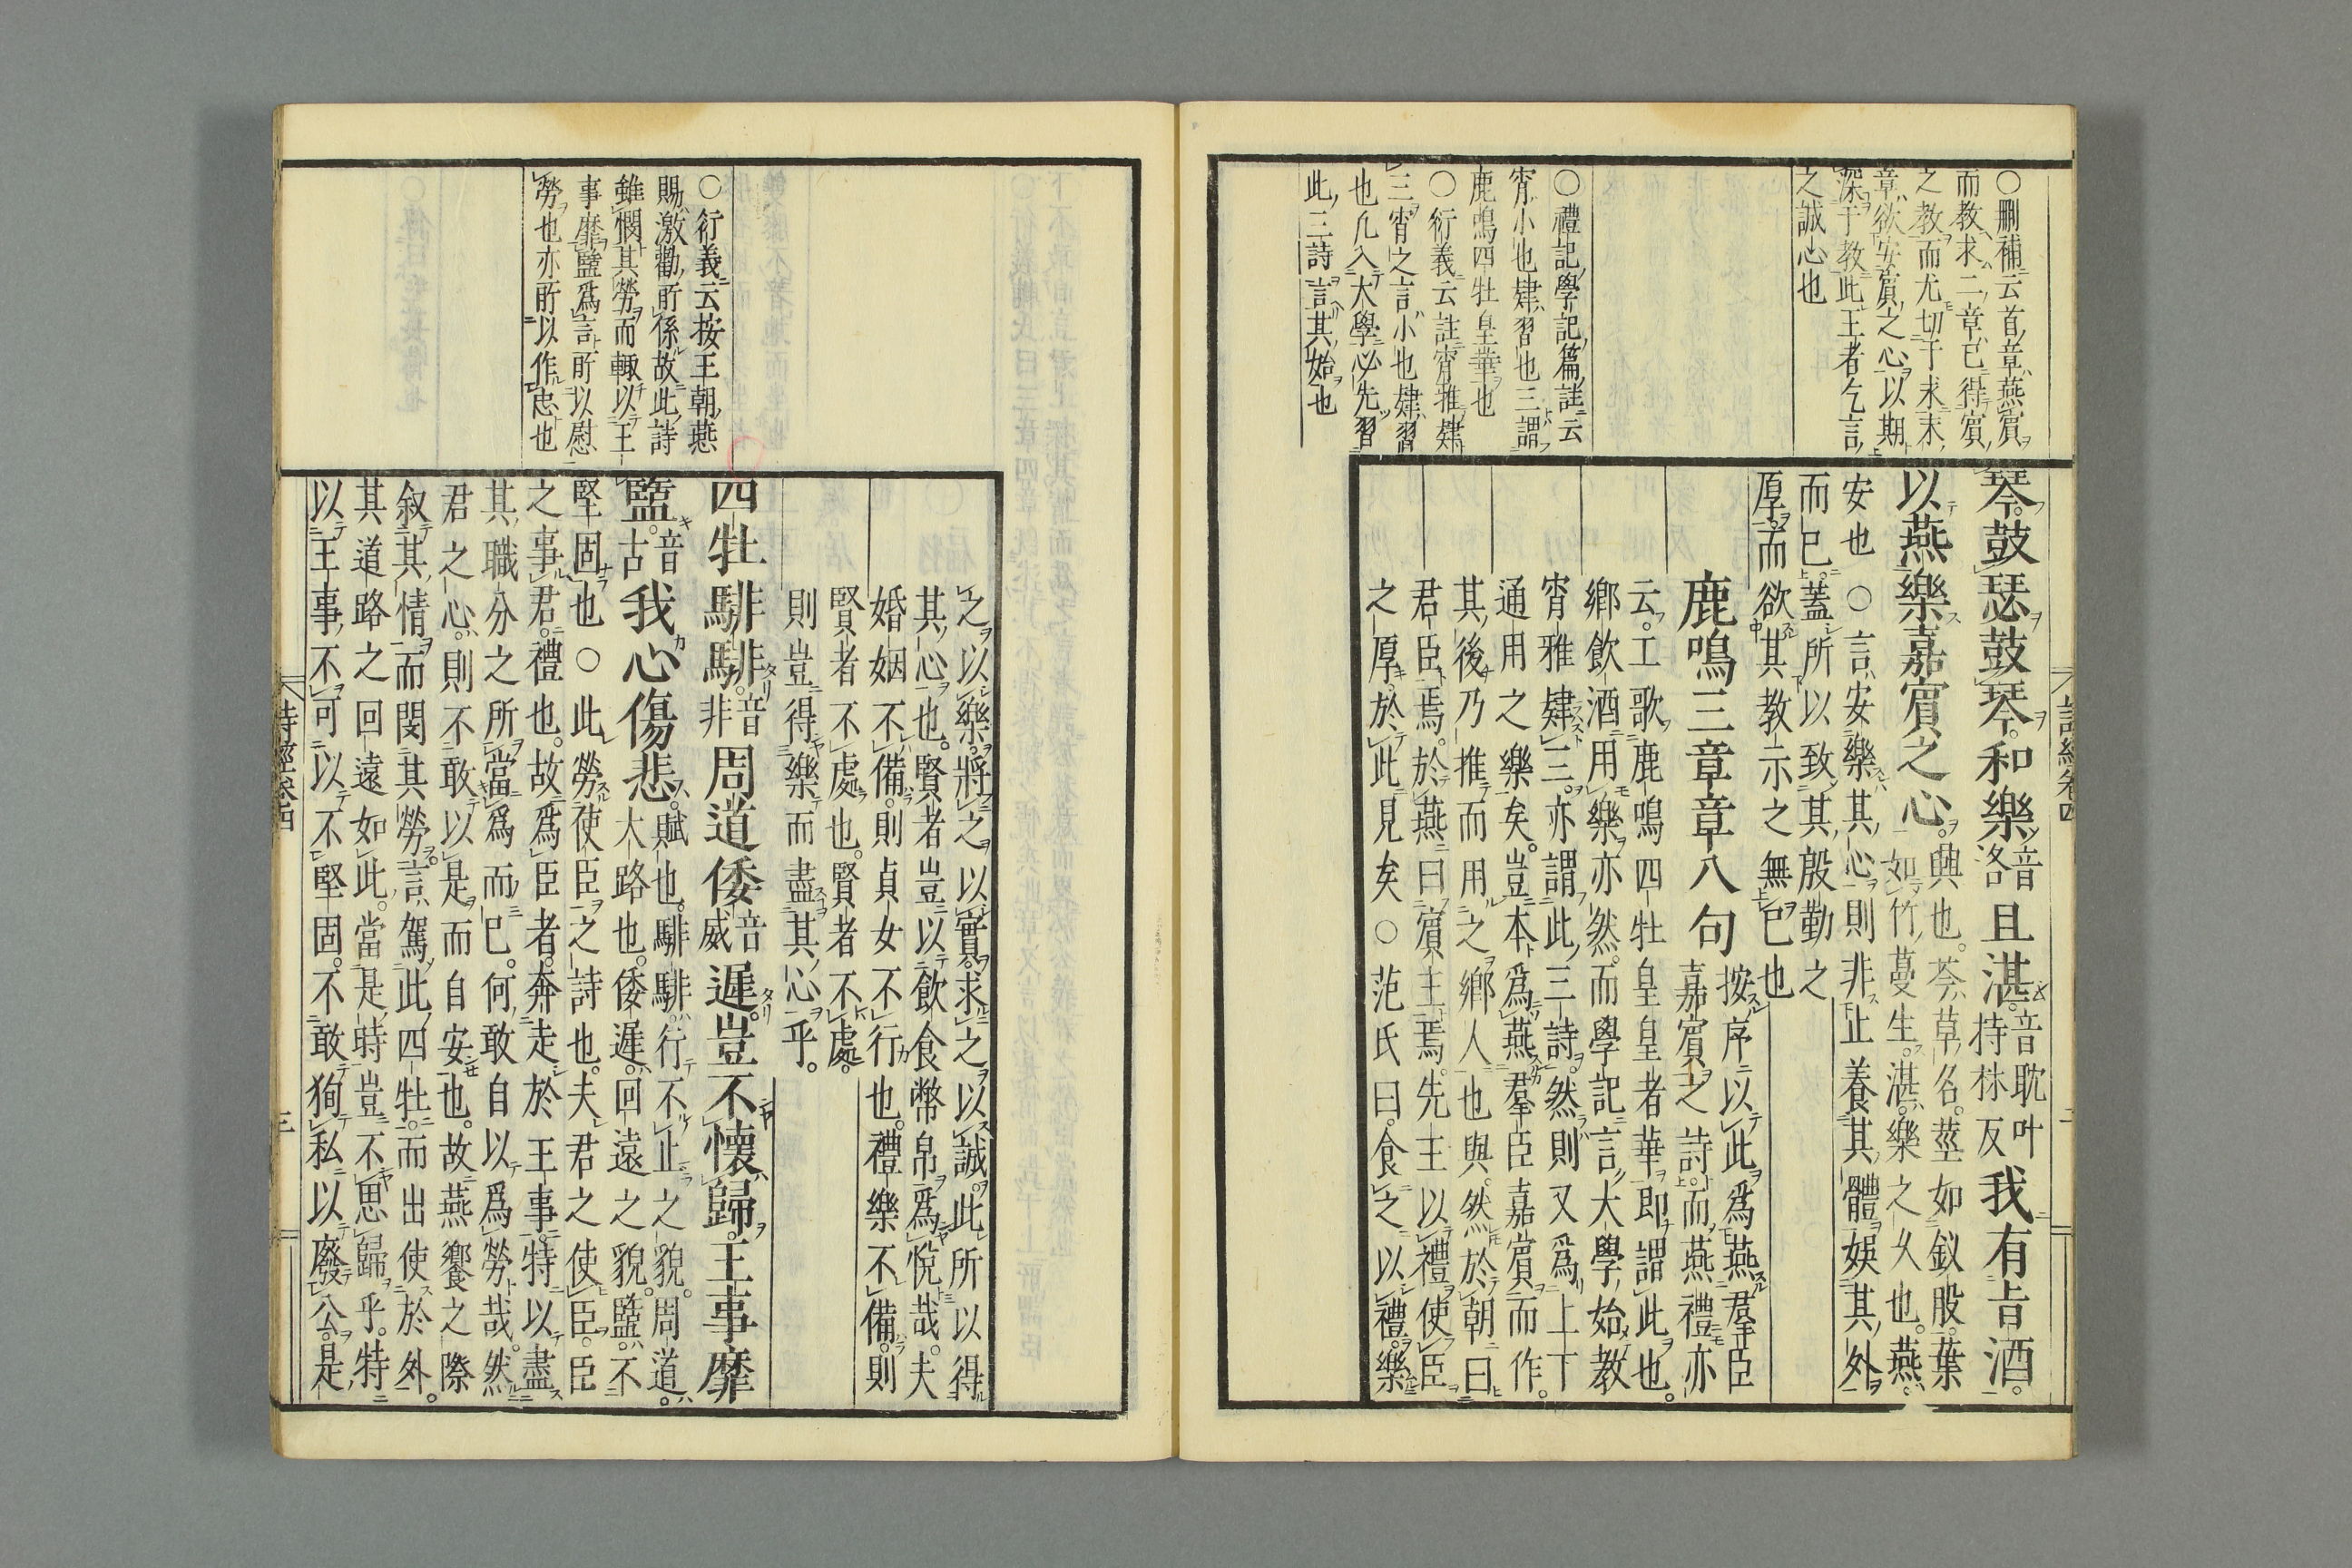 ○刪補云首章燕賓
而教求二章已得賓
之教而尤切于求末
章欲安賓之心以期
深于教此王者乞言
之誠心也
○禮記學記篇註云
宵小也肄習也三謂
鹿鳴四牡皇華也
○衍義云註宵雅肄
三宵之言小也肄習
也凡入大學必先習
此三詩言其始也
琴鼓瑟鼓琴和樂音洛且湛音耽叶持林反我有旨酒
以燕樂嘉賓之心興也芩草名莖如釵股葉
如竹蔓生湛樂之久也燕
安也○言安樂其心則非止養其體娛其外
而已蓋所以致其殷勤之
厚而欲其教示之無已也
鹿鳴三章章八句
按序以此爲燕羣臣
嘉賓之詩而燕禮亦
云工歌鹿鳴四牡皇皇者華即謂此也
鄉飲酒用樂亦然而學記言大學始教
宵雅肄三亦謂此三詩然則又爲上下
通用之樂矣豈本爲燕羣臣嘉賓而作
其後乃推而用之鄉人也與然於朝曰
君臣焉於燕曰賓主焉先王以禮使臣
之厚於此見矣○范氏曰食之以禮樂
詩經卷四
二
○衍義云按王朝燕
賜激勸所係故此詩
雖憫其勞而輙以王
事靡盬爲言所以慰
勞也亦所以作忠也
之以樂將之以實求之以誠此所以得
其心也賢者豈以飲食幣帛爲悅哉夫
婚姻不備則貞女不行也禮樂不備則
賢者不處也賢者不處
則豈得樂而盡其心乎
四牡騑騑音非周道倭音威遲豈不懷歸王事靡
盬音古我心傷悲賦也騑騑行不止之貌周道
大路也倭遲回遠之貌盬不
堅固也○此勞使臣之詩也夫君之使臣臣
之事君禮也故爲臣者奔走於王事特以盡
其職分之所當爲而已何敢自以爲勞哉然
君之心則不敢以是而自安也故燕饗之際
叙其情而閔其勞言駕此四牡而出使於外
其道路之回遠如此當是時豈不思歸乎特
以王事不可以不堅固不敢狥私以廢公是
詩經卷四
三